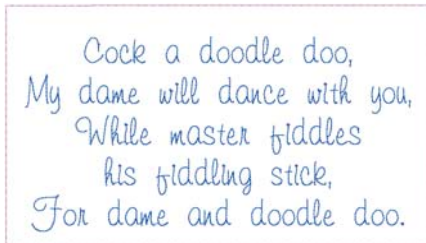 Cock a doodle doo,
My dame will dance with you,
While master fiddles
his fiddling stick,
For dame and doodle doo.